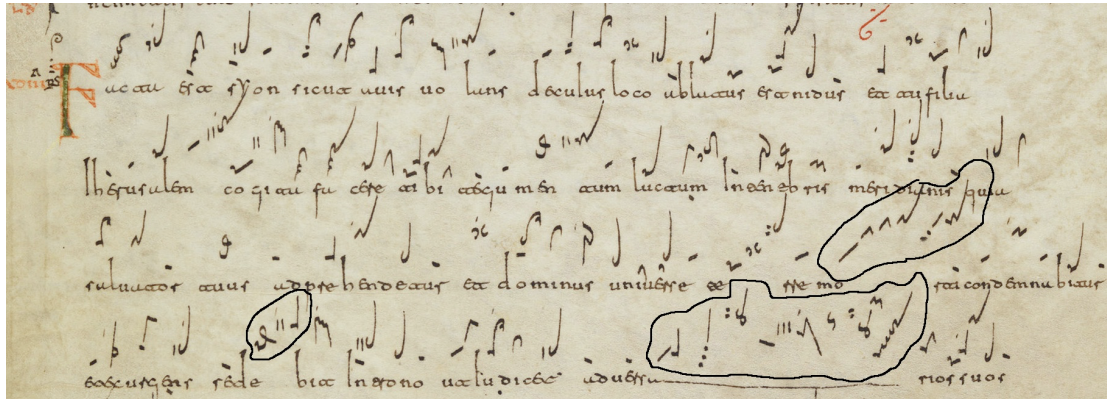 Facta est syon sicut avis volans de cuius loco ablatus est nidus et tu filia
Iherusalem cogita facere tibi tegumentum luctum In tenebris meridianis quia
salvator tuus adprehendetur et dominus universe terre morti condemnabitur
et exurgens sedebit In trono ut Iudicet adversarios suos